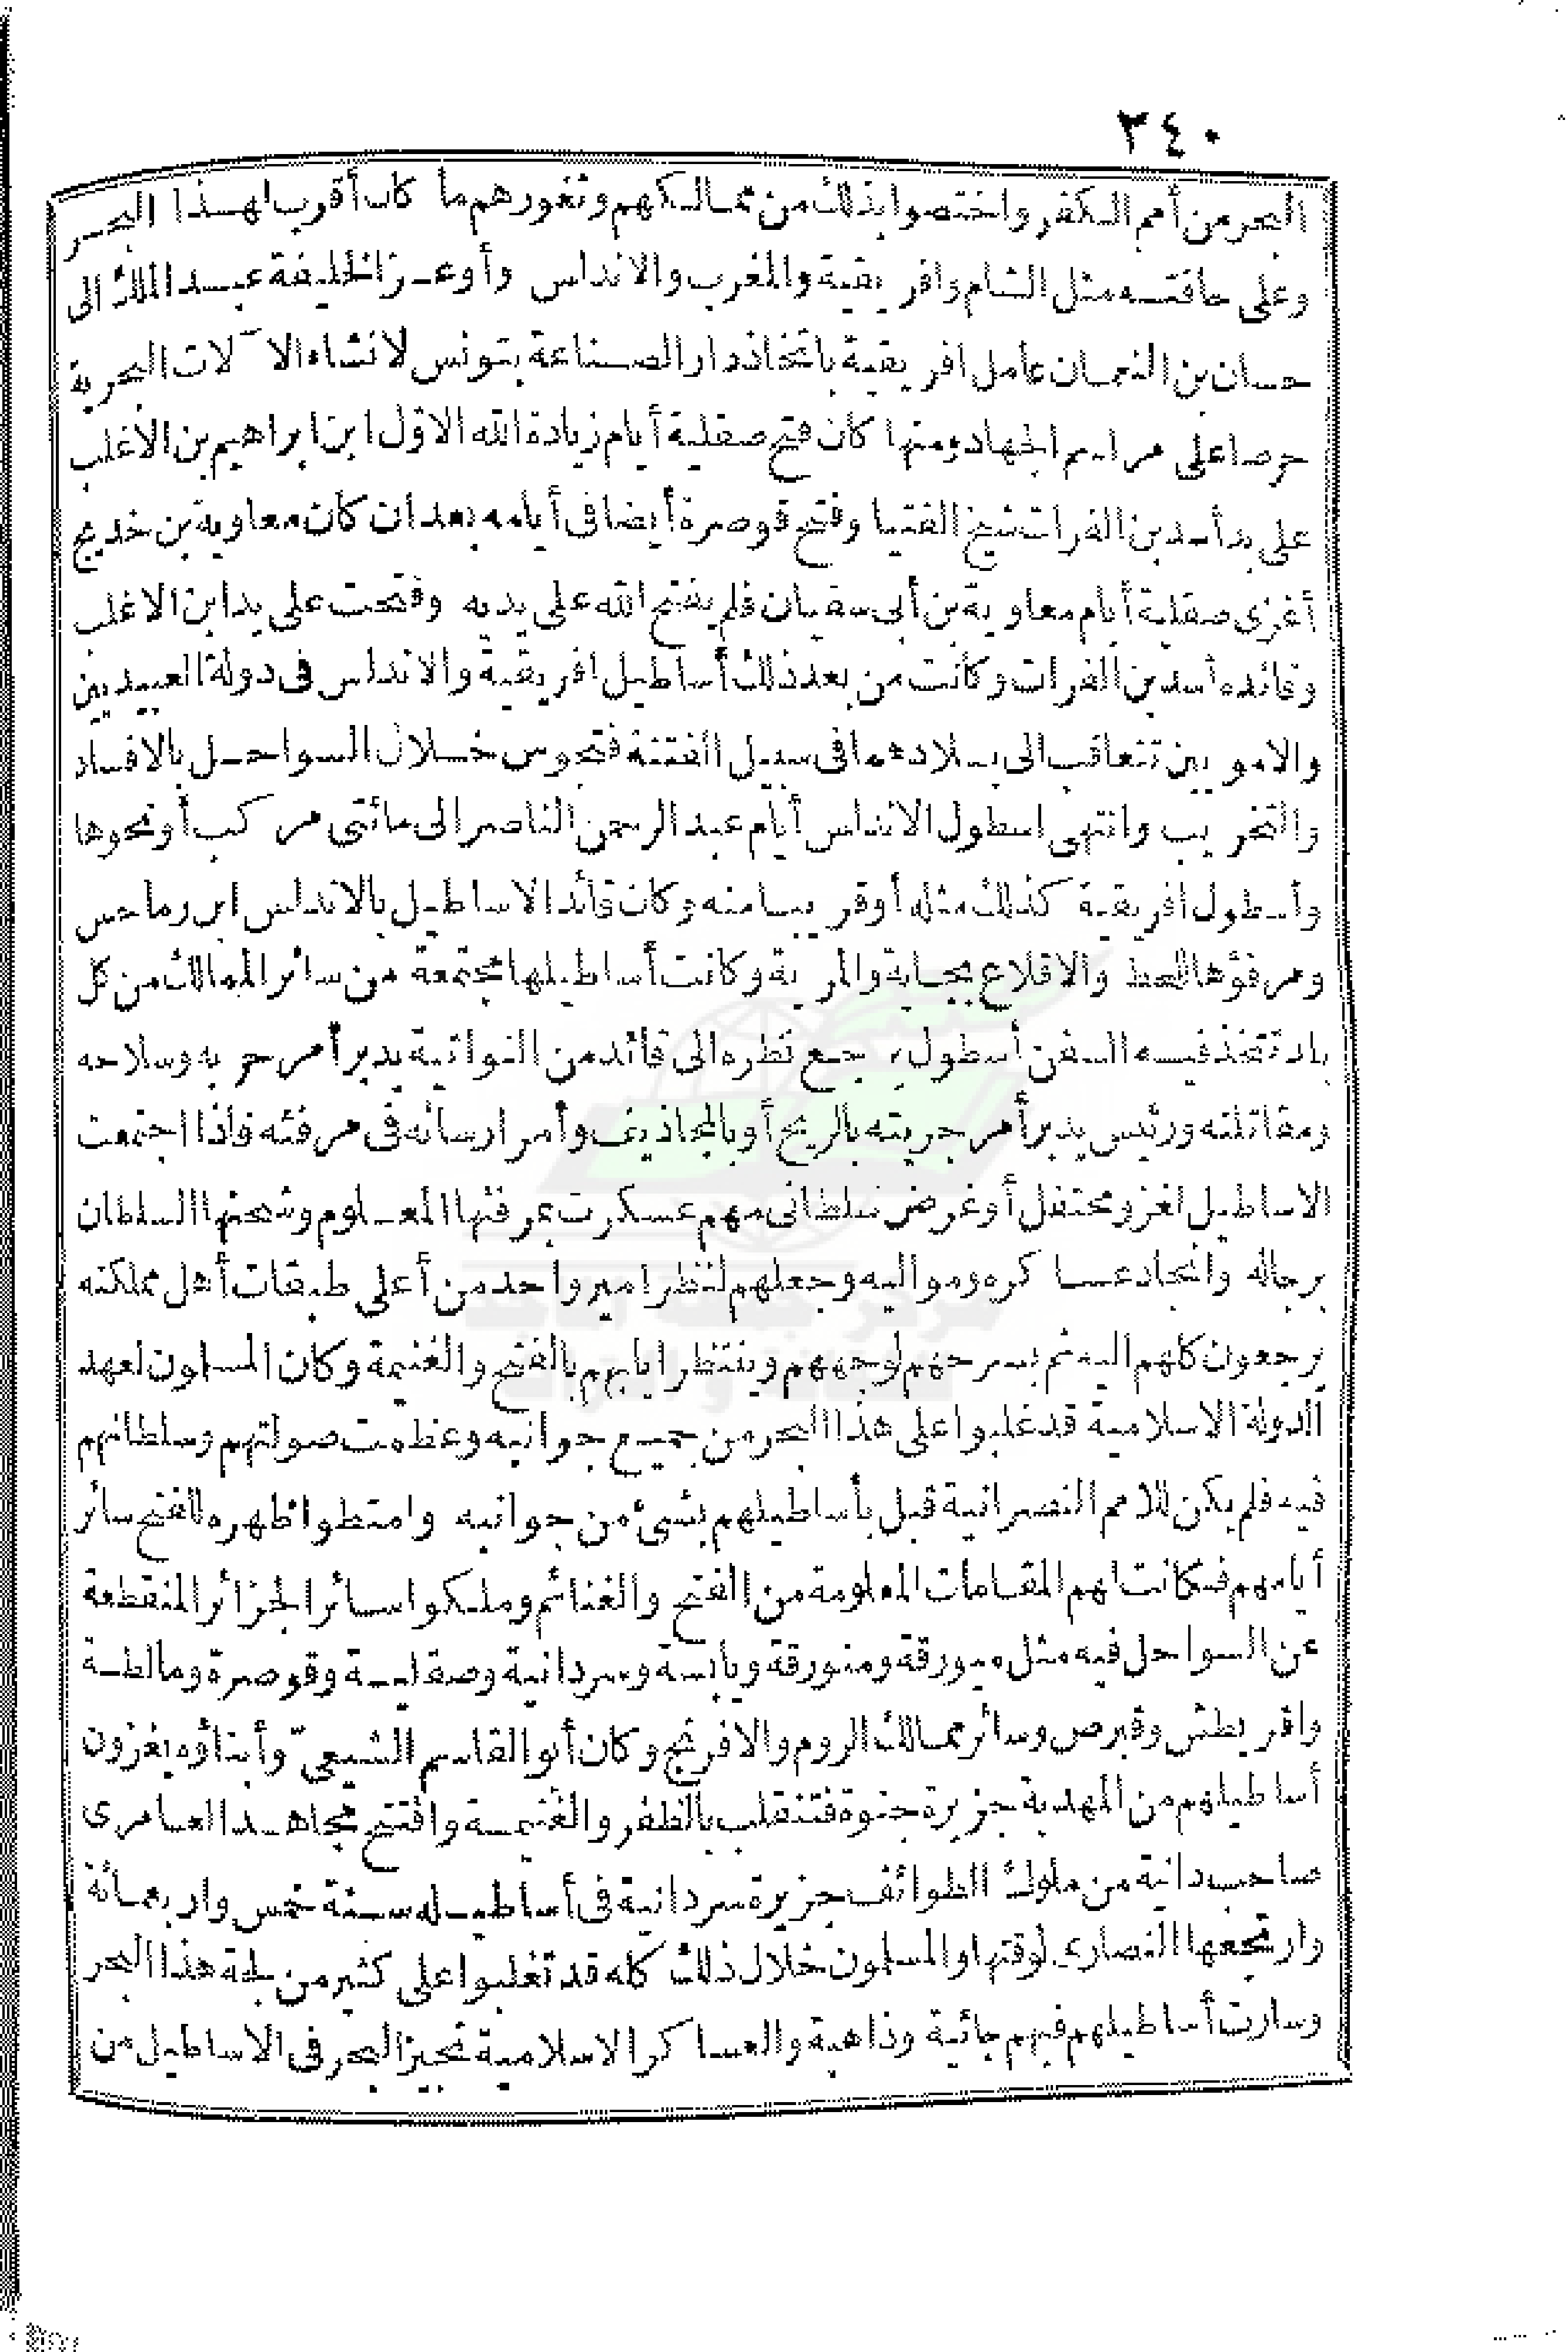 ٣٤٠
البحر من أمم الكفر واختصوا بذلك من ممالكهم وثغورهم ما كان أقرب لهذا البحر
وعلى حافته مثل الشام وافريقية والمغرب والاندلس وأوعز الخليفة عبد الملك الى
حسان بن النعمان عامل افريقية باتخاذ دار الصناعة بتونس لانشاء الآلات البحرية
حرصا على مراسم الجهاد ومنها كان فتح صقلية أيام زيادة الله الاوّل ابن ابراهيم بن الأغلب
على يد أسد بن الفرات شيخ الفتيا وفتح قوصرة أيضا فى أيامه بعد ان كان معاوية بن خديج
أغزى صقلية أيام معاوية بن أبى سفيان فلم يفتح الله على يديه وفتحت على يد ابن الاغلب
وقائده أسد بن الفرات وكانت من بعد ذلك أساطيل افريقية والاندلس فى دولة العبيديين
والامويين تتعاقب الى بلادهما فى سبيل الفتنة فتجوس خلال السواحل بالافساد
والتخريب وانتهى اسطول الاندلس أيام عبد الرحمن الناصر الى مائتى مركب أو نحوها
وأسطول افريقية كذلك مثله أو قريبا منه وكان قائد الاساطيل بالاندلس ابن رماحس
ومرفؤها للحط والاقلاع بجاية والمرية وكانت أساطيلها مجتمعة من سائر الممالك من كل
بلد تتخذ فيه السفن أسطول يرجع نظره الى قائد من النواتية يدبر أمر حربه وسلاحه
ومقاتلته ورئيس يدبر أمر جريته بالريح أو بالمجاذيف وأمر ارسائه فى مرفئه فاذا اجتمعت
الاساطيل لغزو محتفل أو غرض سلطانى مهم عسكرت بمرفئها المعلوم وشحنها السلطان
برجاله وانجاد عساكره ومواليه وجعلهم لنظر امير واحد من أعلى طبقات أهل مملكته
يرجعون كلهم اليه ثم يسرحهم لوجههم وينتظر ايابهم بالفتح والغنيمة وكان المسلمون لعهد
الدولة الاسلامية قد غلبوا على هذا البحر من جميع جوانبه وعظمت صولتهم وسلطانهم
فيه فلم يكن للامم النصرانية قبل بأساطيلهم بشئ من جوانبه وامتطوا ظهره للفتح سائر
أيامهم فكانت لهم المقامات المعلومة من الفتح والغنائم وملكوا سائر الجزائر المنقطعة
عن السواحل فيه مثل ميورقة ومنورقة ويابسة وسردانية وصقلية وقوصرة ومالطة
واقريطش وقبرص وسائر ممالك الروم والافرنج وكان أبو القاسم الشيعىّ وأبناؤه يغزون
أساطيلهم من المهدية جزيرة جنوة فتنقلب بالظفر والغنيمة وافتتح مجاهد العامرى
صاحب دانية من ملوك الطوائف جزيرة سردانية فى أساطيله سنة خمس واربعمائة
وارتجعها النصارى لوقتها والمسلمون خلال ذلك كله قد تغلبوا على كثير من لجة هذا البحر
وسارت أساطيلهم فيهم جائية وذاهبة والعساكر الاسلامية تجيز البحر فى الاساطيل من